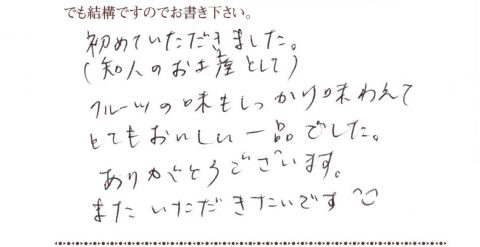 でも結構ですのでお書き下さい。
初めていただきました。
(知人のお土産として)
フルーツの味もしっかり味わえて
とてもおいしい一品でした。
ありがとうございます。
またいただきたいです